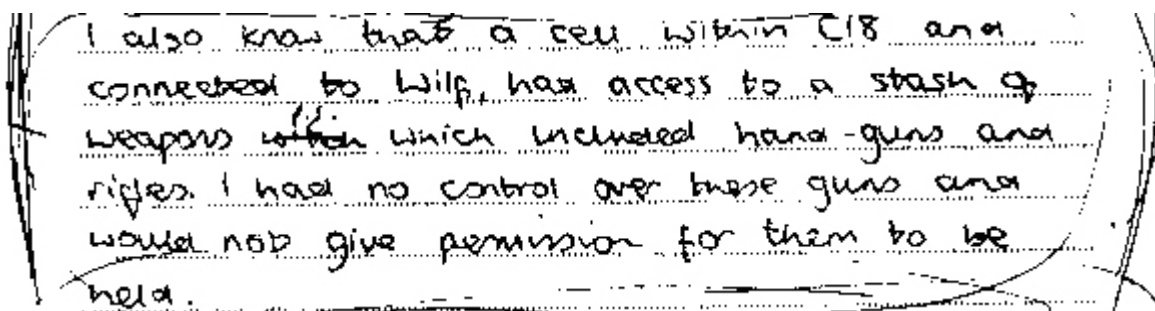 I also know that a cell within C18 and
connected to Wilf, had access to a stash of
weapons which included hand-guns and
rifles. I had no control over these guns and
would not give permission for them to be
held.